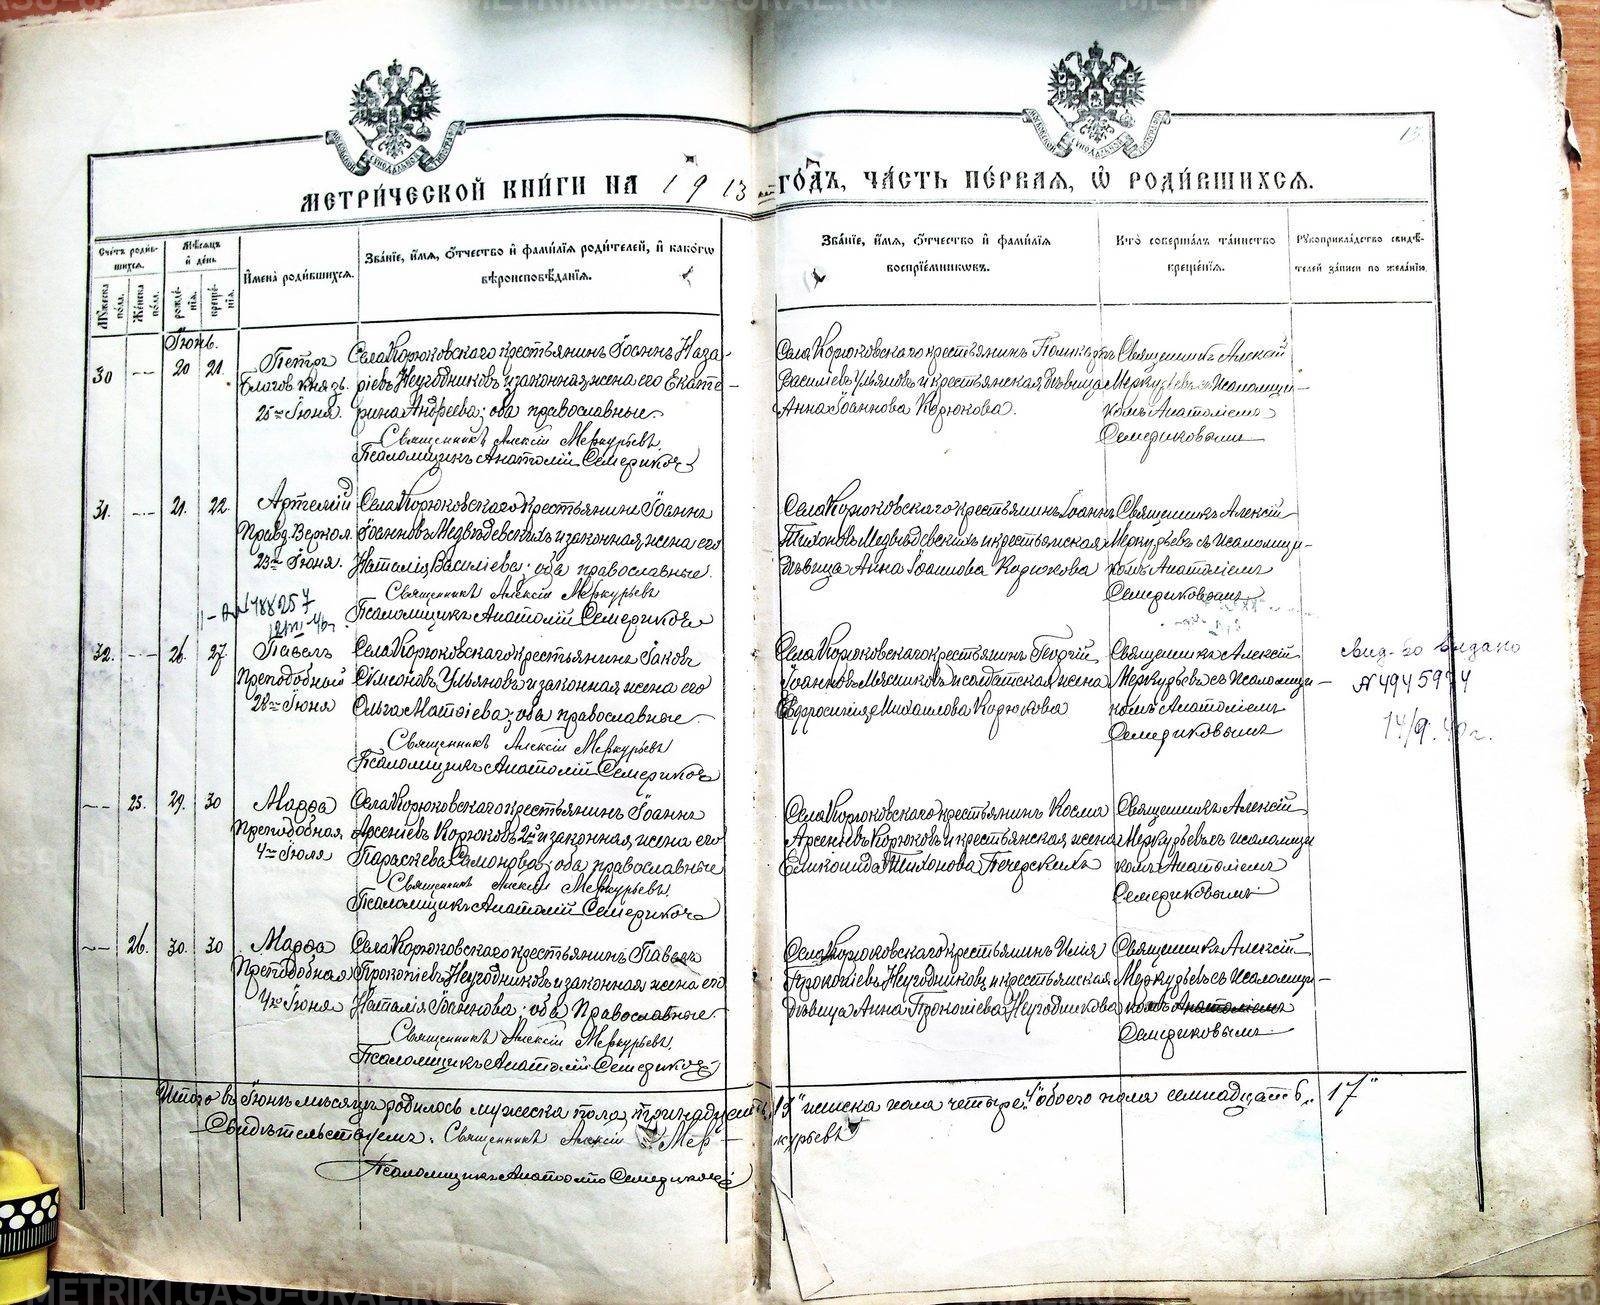 МЕТРИЧЕСКОЙ КНИГИ НА 1913 ГОДЪ, ЧАСТЬ ПЕРВАЯ, Ѡ РОДИВШИХСЯ.
Счетъ родившихся.
Мужеска пола.
Женска пола.
Мѣсяцъ и день.
рожденія.
крещенія.
Имена родившихся.
Званіе, имя, отчество и фамилія родителей, и какого вѣроисповѣданія.
Званіе, имя, отчество и фамилія воспріемниковъ.
Кто совершалъ таинство крещенія.
Рукоприкладство свидѣтелей записи по желанію.
Іюнь.
30 -- 20 21.
Петръ
Благов. князь.
25го Іюня.
Села Корюковскаго крестьянинъ Іоаннъ Наза-
ріевъ Неугодниковъ и законная жена его Екате-
рина Андреева; оба православные.
Священникъ Алексій Меркурьевъ
Псаломщикъ Анатолій Семериковъ
Села Корюковскаго крестьянинъ Поликарпъ
Василіевъ Ульяновъ и крестьянская дѣвица
Анна Іоаннова Корюкова.
Священникъ Алексій
Меркурьевъ съ псаломщи-
комъ Анатоліемъ
Семериковымъ
31. -- 21. 22.
Артемій
Правд. Веркол.
23го Іюня.
Села Корюковскаго крестьянинъ Іоаннъ
Іоанновъ Медвѣдевскихъ и законная жена его
Наталія Василіева; оба православные.
Священникъ Алексій Меркурьевъ
Псаломщикъ Анатолій Семериковъ
Села Корюковскаго крестьянинъ Іоаннъ
Тихоновъ Медвѣдевскихъ и крестьянская
дѣвица Анна Іоаннова Корюкова
Священникъ Алексій
Меркурьевъ съ псаломщи-
комъ Анатоліемъ
Семериковымъ
488257
32. -- 26. 27
Павелъ
Преподобный
28го Іюня
Села Корюковскаго крестьянинъ Іаковъ
Симеоновъ Ульяновъ и законная жена его
Ольга Матѳіева; оба православные.
Священникъ Алексій Меркурьевъ
Псаломщикъ Анатолій Семериковъ
Села Корюковскаго крестьянинъ Георгій
Іоанновъ Мясниковъ и солдатская жена
Евфросинія Михаилова Корюкова
Священникъ Алексій
Меркурьевъ съ псаломщи-
комъ Анатоліемъ
Семериковымъ
Свид-во выдано
N 4945974
14/9. 40г.
-- 25. 29. 30
Марѳа
Преподобная
4го Іюля
Села Корюковскаго крестьянинъ Іоаннъ
Арсеніевъ Корюковъ 2й и законная жена его
Параскева Самонова; оба православные
Священникъ Алексій Меркурьевъ
Псаломщикъ Анатолій Семериковъ
Села Корюковскаго крестьянинъ Косма
Арсеніевъ Корюковъ и крестьянская жена
Тихонова Печерскихъ
Священникъ Алексій
Меркурьевъ съ псаломщи
комъ Анатоліемъ
Семериковымъ
-- 26. 30. 30
Марѳа
Преподобная
4го Іюня
Села Корюковскаго крестьянинъ Павелъ
Прокопіевъ Неугодниковъ и законная жена его
Наталія Іоаннова; оба Православные.
Священникъ Алексій Меркурьевъ
Псаломщикъ Анатолій Семериковъ
Села Корюковскаго крестьянинъ Илія
Прокопіевъ Неугодниковъ и крестьянская
дѣвица Анна Прокопіева Неугодникова
Священникъ Алексій
Меркурьевъ съ псаломщи-
комъ Анатоліемъ
Семериковымъ
Итого въ Іюнѣ мѣсяцѣ родилось мужеска пола тринадцать „13“ женска пола четыре „4“ обоего пола семнадцать „17“
Свидѣтельствуемъ: Священникъ Алексій Меркурьевъ
Псаломщикъ Анатолій Семериковъ
METRIKI.GASU-URAL.RU